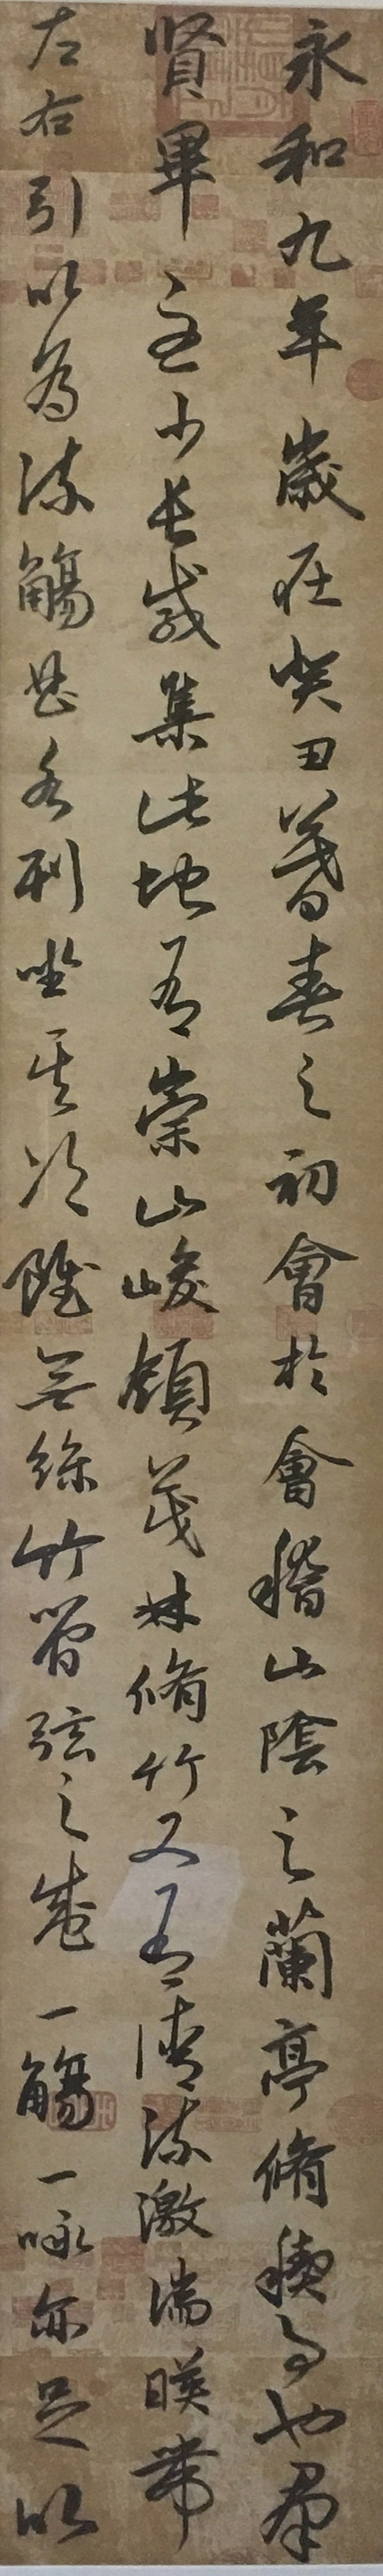 永和九年歲在癸丑暮春之初會於會稽山陰之蘭亭脩稧事也群
賢畢至少長咸集此地有崇山峻領茂林脩竹又有清流激湍暎帶
左右引以為流觴曲水列坐其次雖無絲竹管弦之盛一觴一詠亦足以